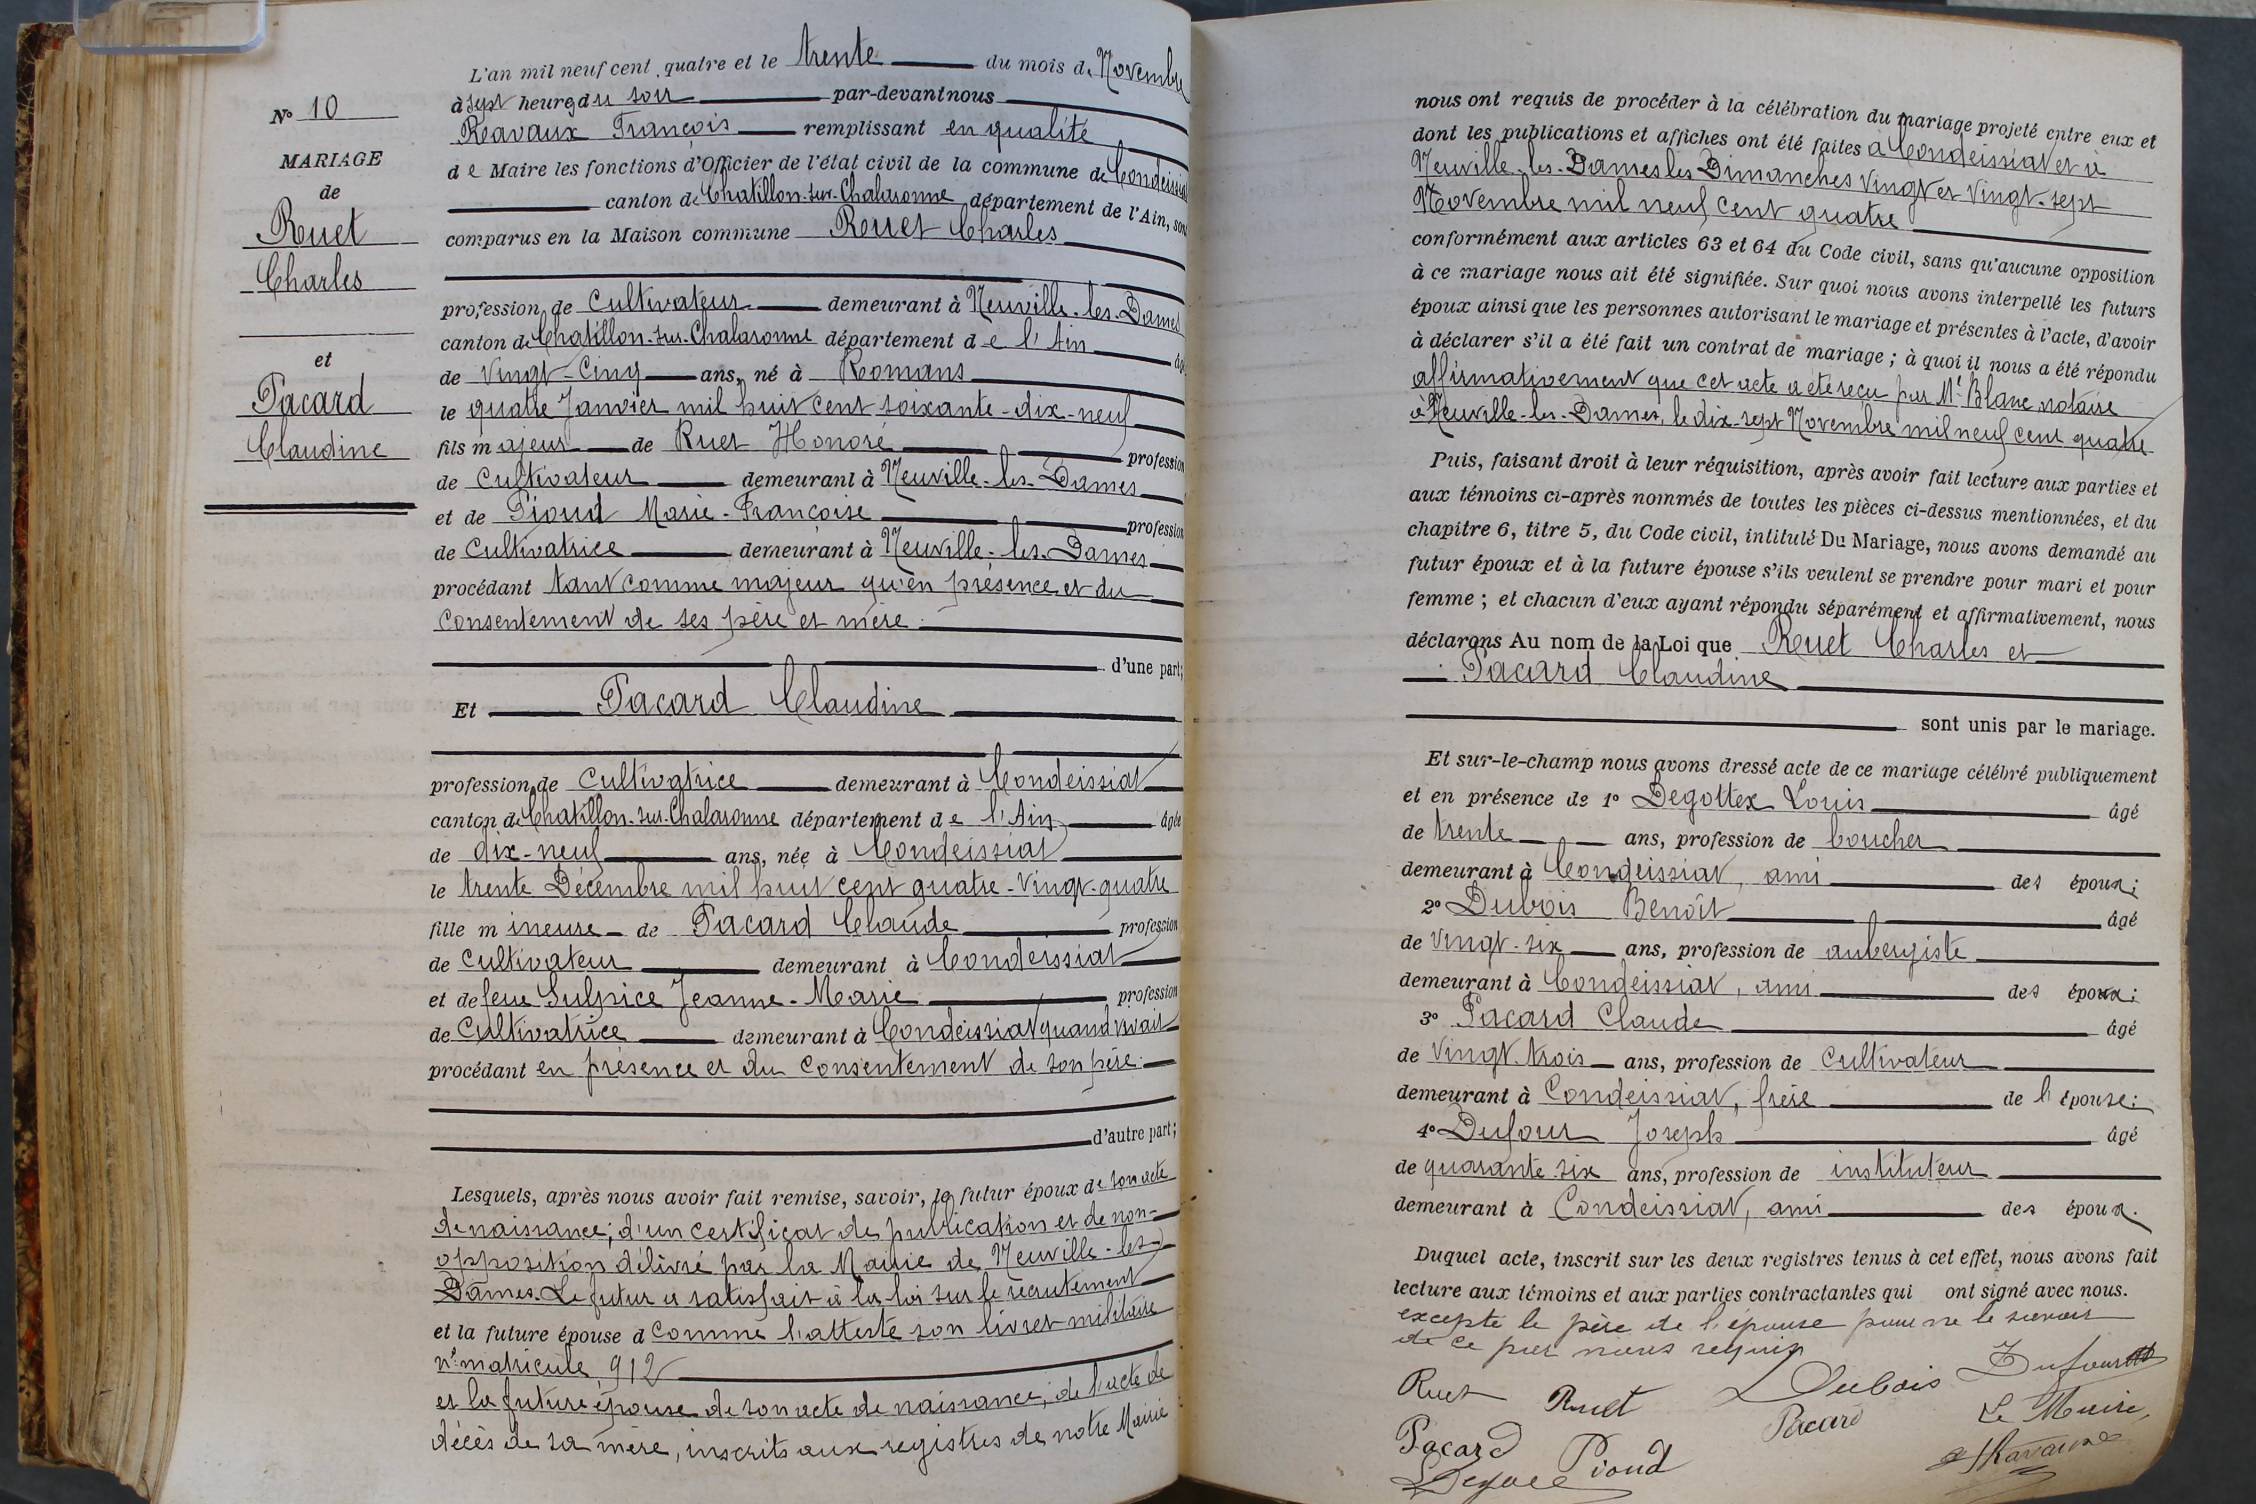 N° 10
MARIAGE
de
Ruet
Charles
et
Pacard
Claudine
L'an mil neuf cent quatre et le trente du mois de Novembre
à sept heures du soir par-devant nous
Ravaux François remplissant en qualité
de Maire les fonctions d'Officier de l'état civil de la commune de Condeissiat
canton de Chatillon-sur-Chalaronne département de l'Ain, sont
comparus en la Maison commune Ruet Charles
profession de Cultivateur demeurant à Neuville-les-Dames
canton de Chatillon-sur-Chalaronne département de l'Ain âgé
de Vingt-Cinq ans, né à Romans
le quatre Janvier mil huit cent soixante-dix-neuf
fils majeur de Ruet Honoré profession
de Cultivateur demeurant à Neuville-les-Dames
et de Pioud Marie-Françoise profession
de Cultivatrice demeurant à Neuville-les-Dames
procédant tant comme majeur qu'en présence et du
Consentement de ses père et mère.
d'une part;
Et Pacard Claudine
profession de Cultivatrice demeurant à Condeissiat
canton de Chatillon-sur-Chalaronne département de l'Ain âgée
de dix-neuf ans, née à Condeissiat
le trente Décembre mil huit cent quatre-Vingt-quatre
fille mineure de Pacard Claude profession
de Cultivateur demeurant à Condeissiat
et de feue Sulpice Jeanne-Marie profession
de Cultivatrice demeurant à Condeissiat quand vivait
procédant en présence et du Consentement de son père.
d'autre part;
Lesquels, après nous avoir fait remise, savoir, le futur époux de son acte
de naissance; d'un certificat de publication et de non-
opposition délivré par la Mairie de Neuville-les-
Dames. Le futur a satisfait à la loi sur le recrutement
et la future épouse d comme l'atteste son livret militaire
n° matricule 912
et la future épouse de son acte de naissance, de l'acte de
décès de sa mère, inscrits aux registres de notre Mairie
nous ont requis de procéder à la célébration du mariage projeté entre eux et
dont les publications et affiches ont été faites à Condeissiat et à
Neuville-les-Dames les Dimanches Vingt et Vingt-sept
Novembre mil neuf cent quatre
conformément aux articles 63 et 64 du Code civil, sans qu'aucune opposition
à ce mariage nous ait été signifiée. Sur quoi nous avons interpellé les futurs
époux ainsi que les personnes autorisant le mariage et présentes à l'acte, d'avoir
à déclarer s'il a été fait un contrat de mariage; à quoi il nous a été répondu
affirmativement que cet acte a été reçu par Me Blanc notaire
à Neuville-les-Dames, le dix-sept Novembre mil neuf cent quatre
Puis, faisant droit à leur réquisition, après avoir fait lecture aux parties et
aux témoins ci-après nommés de toutes les pièces ci-dessus mentionnées, et du
chapitre 6, titre 5, du Code civil, intitulé Du Mariage, nous avons demandé au
futur époux et à la future épouse s'ils veulent se prendre pour mari et pour
femme; et chacun d'eux ayant répondu séparément et affirmativement, nous
déclarons Au nom de la Loi que Ruet Charles et
Pacard Claudine
sont unis par le mariage.
Et sur-le-champ nous avons dressé acte de ce mariage célébré publiquement
et en présence de 1° Degottex Louis âgé
de trente ans, profession de boucher
demeurant à Condeissiat, ami des époux;
2° Dubois Benoît âgé
de vingt-six ans, profession de aubergiste
demeurant à Condeissiat, ami des époux;
3° Pacard Claude âgé
de Vingt-trois ans, profession de Cultivateur
demeurant à Condeissiat, frère de l'épouse;
4° Dufour Joseph âgé
de quarante-six ans, profession de instituteur
demeurant à Condeissiat, ami des époux.
Duquel acte, inscrit sur les deux registres tenus à cet effet, nous avons fait
lecture aux témoins et aux parties contractantes qui ont signé avec nous.
excepté le père de l'épouse pour ne le savoir
de ce par nous requis
Ruet Ruet Dubois Dufour
Pacard Pioud Pacard Le Maire,
Ravaux